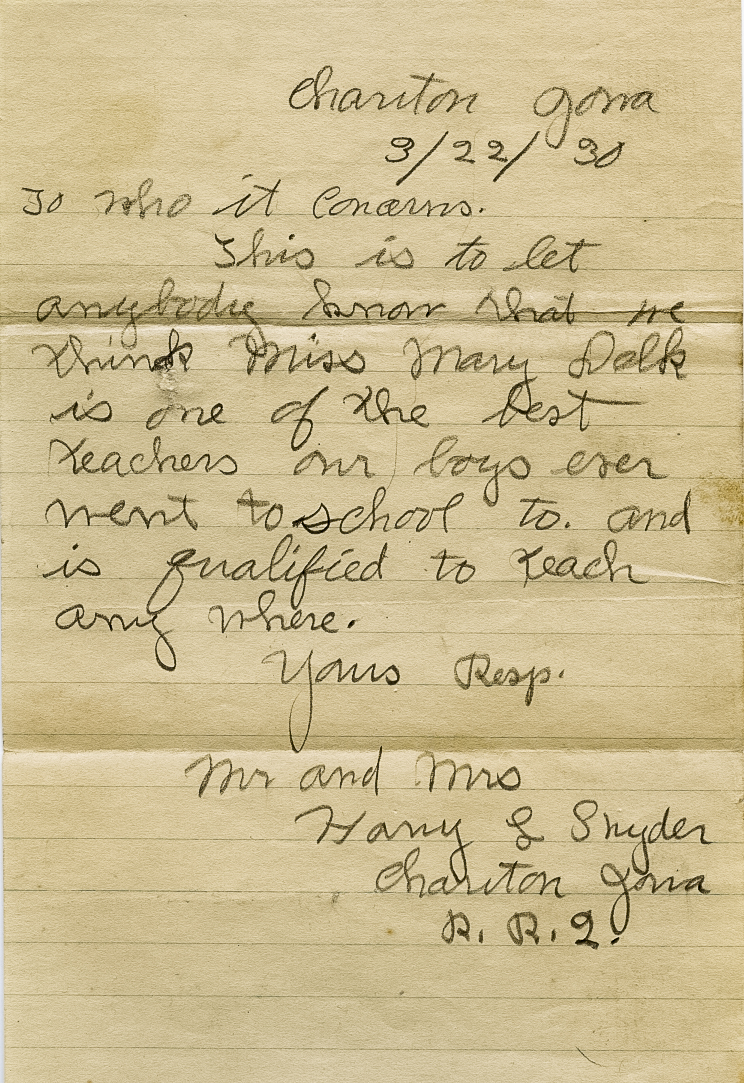 Chariton Iowa
3/22/30
To who it Concerns.
This is to let
anybody know that we
think Miss Mary Delk
is one of the best
teachers our boys ever
went to school to. and
is qualified to teach
any where.
Yours Resp.
Mr and Mrs
Harry L Snyder
Chariton Iowa
R. R. 2.